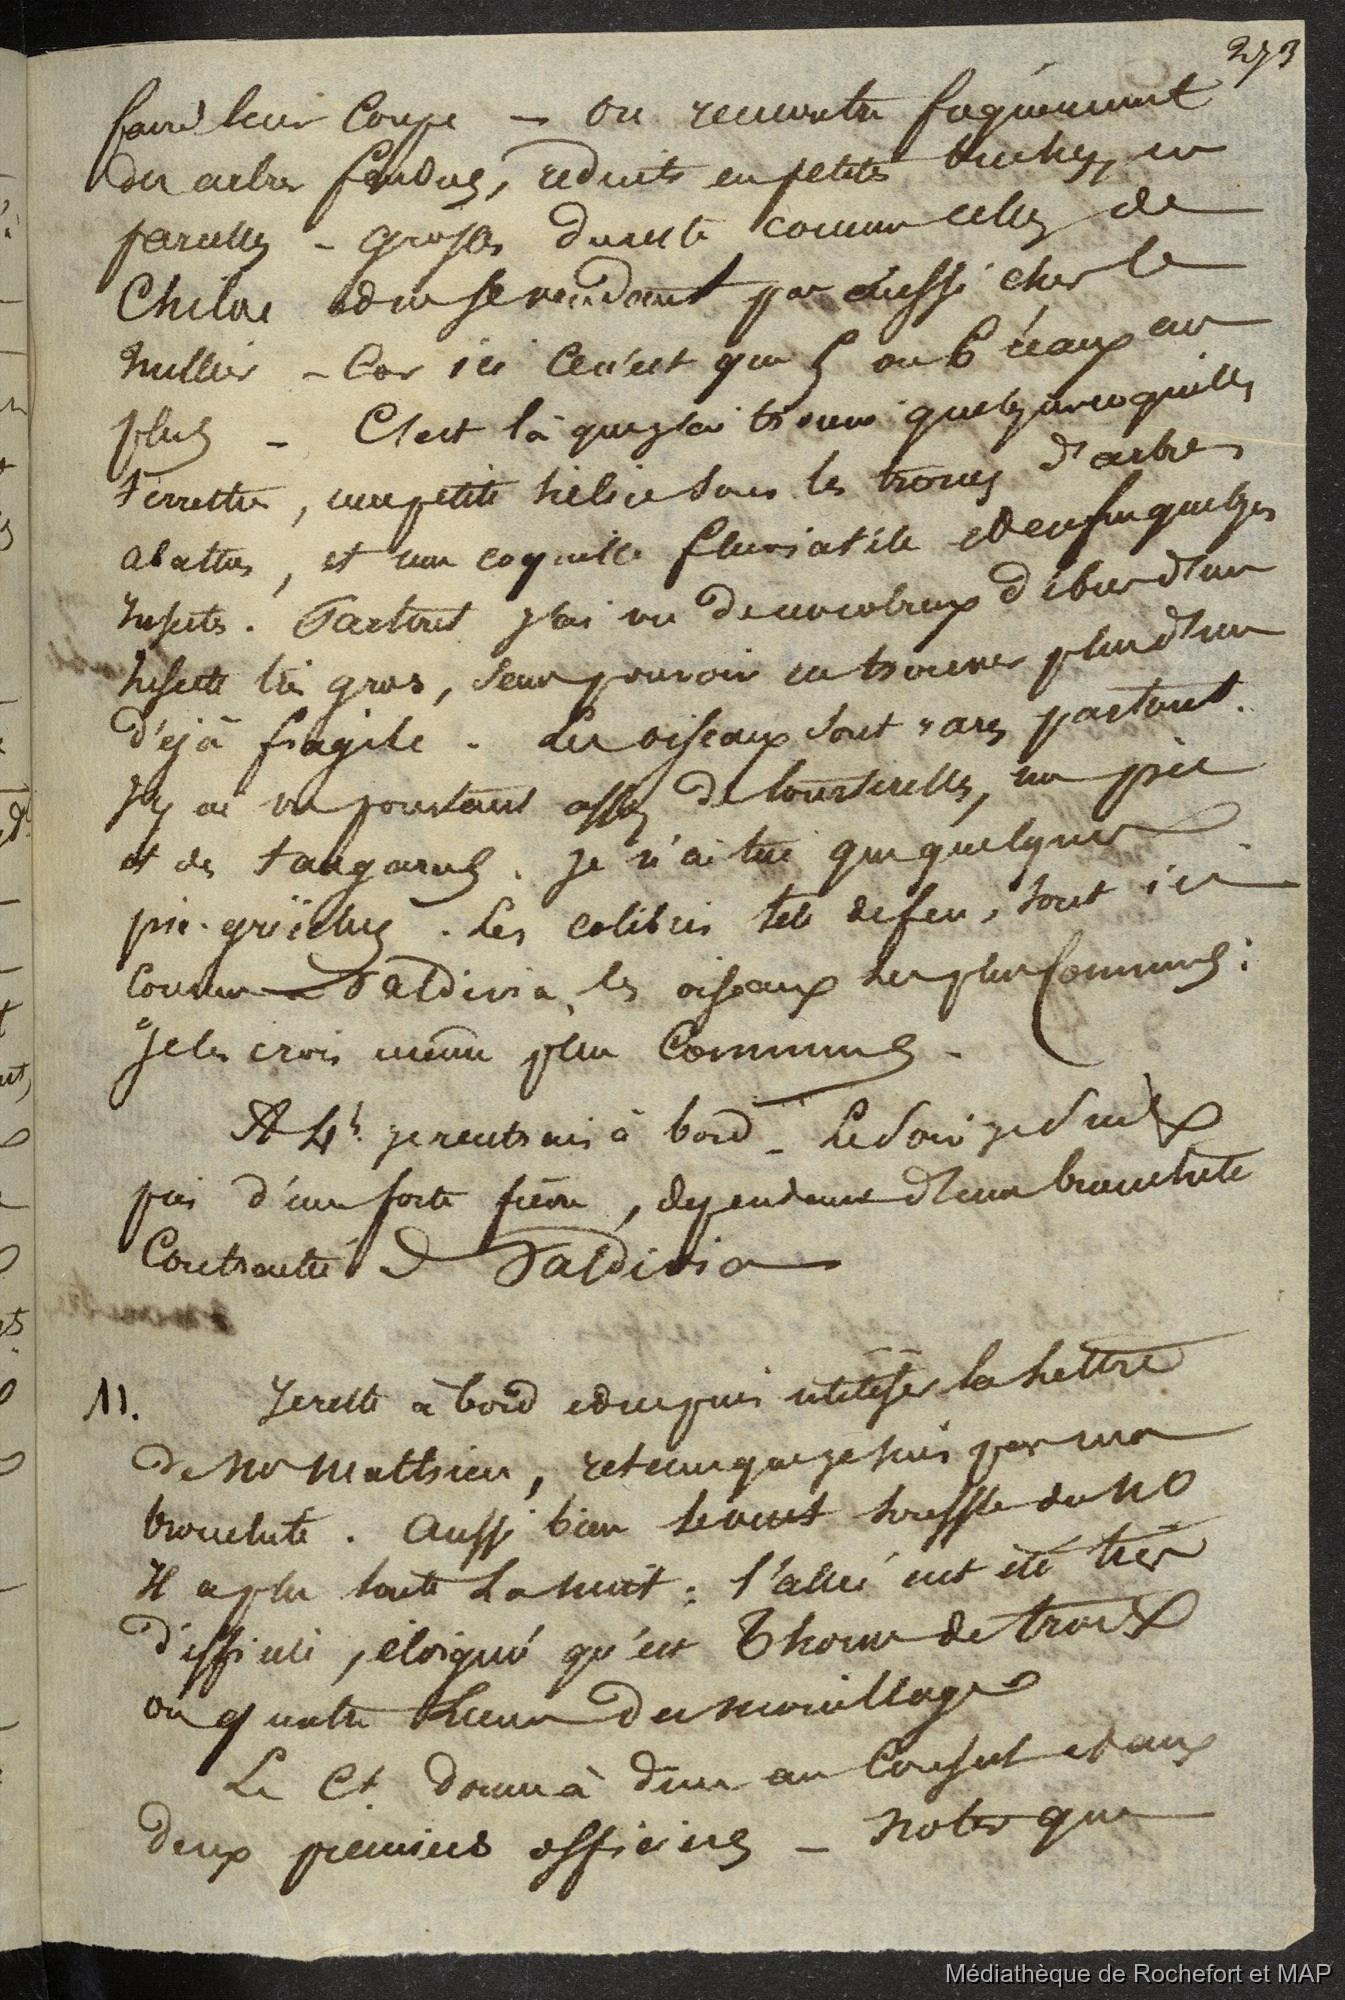 273
faire leur coupe — on rencontre fréquemment
des arbres fendus, réduits en petites buches, en
parcelles — grosses du reste comme celles de
Chiloe et ne se vendant pas aussi cher le
millier — Car ici ce n'est que 5 ou 6 réaux au
plus — C'est là que j'ai trouvé quelques coquilles
terrestres, une petite hélice sous les troncs d'arbres
abattus, et une coquille fluviatile et enfin quelques
insectes. Partout j'ai vu de nombreux débris d'un
insecte très gros, sans pouvoir en trouver plus d'un
déjà fragile. Les oiseaux sont rares partout.
J'y ai vu pourtant assez de tourterelles, un pic
et des tangaras. Je n'ai tué que quelques
pie-grièches. Les colibris tête de feu, sont ici
comme à Valdivia, les oiseaux les plus communs :
Je les crois même plus communs —
A 4h. je rentrais à bord — Le soir je suis
pris d'une forte fièvre, dépendance d'une bronchite
contractée à Valdivia
11. Je reste à bord et ne puis utiliser la lettre
de Mr Matthieu, retenu que je suis par ma
bronchite. Aussi bien le vent souffle du NO
Il a plu toute la nuit : l'allée eut été très
difficile, éloigné qu'est Thome de trois
ou quatre lieues du mouillage
Le Ct. donne à diner au Consul et aux
deux premiers officiers — Noter que
Médiathèque de Rochefort et MAP